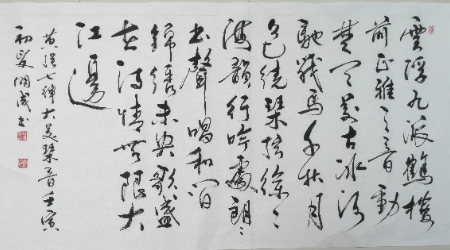 雲浮九派鶴樓
前正雅之音動
楚天萬古冰河
馳戰馬千秋月
色繞琴弦徐々
海韻行吟處朗々
書聲唱和
錦繡未央歌盛
世詩情無限大
江邊
七律大美琴音壬寅
初夏書